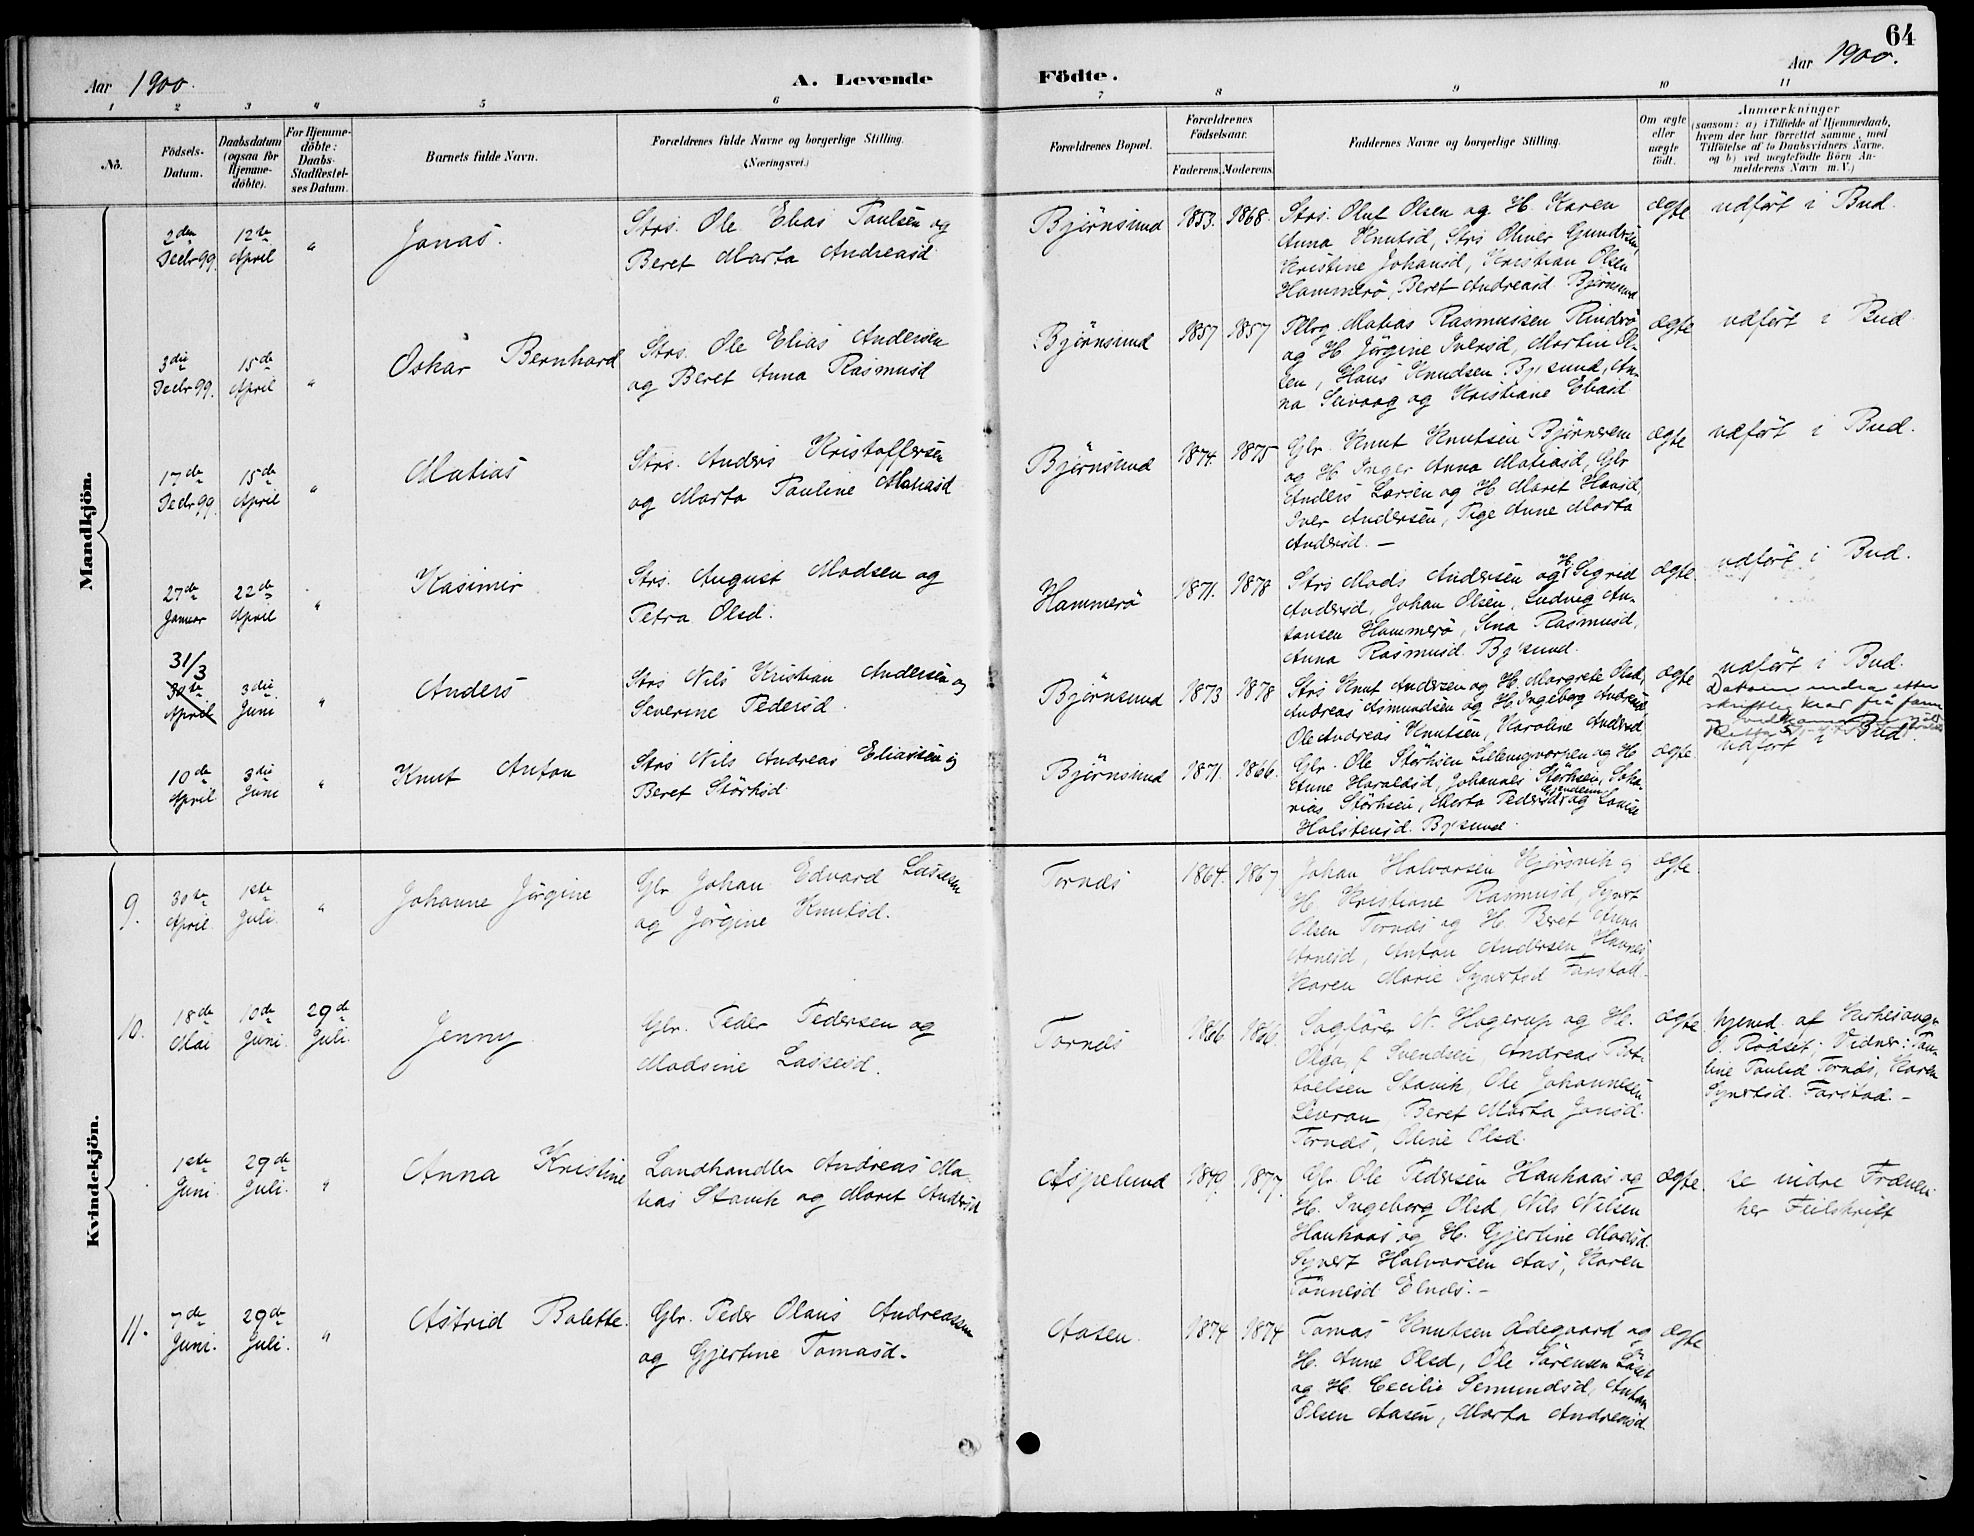 64
Aar 1900.
A. Levende
Födte.
Aar 1900.
1 2 3 4 5 6 7 8 9 10 11
No.
Födsels-
Datum.
Daabsdatum
(ogsaa for
Hjemme-
döbte).
For Hjemme-
döbte:
Daabs-
Stadfestel-
ses Datum.
Barnets fulde Navn.
Forældrenes fulde Navne og borgerlige Stilling.
(Næringsvei.)
Forældrenes Bopæl.
Forældrenes
Födselsaar.
Faderens. Moderens.
Faddernes Navne og borgerlige Stilling.
Om ægte
eller
uægte
födt.
Anmærkninger
(saasom: a) i Tilfælde af Hjemmedaab,
hvem der har forrettet samme, med
Tilföielse af to Daabsvidners Navne.
og b) ved uægtefödte Börn An-
melderens Navn m. V.)
Mandkjön.
2den
Decbr 99.
12te
April
"
Jonas.
Strs. Ole Elias Paulsen og
Beret Marta Andreasd
Bjørnsund
1853. 1868.
Strs. Olut Olsen og H. Karen
Anna Knutsd, Strs Oliver Gundersen,
Kristine Johansd, Kristian Olsen
Hammerø, Beret Andreasd. Bjørnsund
ægte
udført i Bud.
3die
Decbr 99.
15de
April
"
Oskar Bernhard
Strs. Ole Elias Andersen
og Beret Anna Rasmusd
Bjørnsund
1857 1857
Matias Rasmussen Rindarø
og H Jørgine Iversd, Martin Ol-
sen, Hans Knudsen Bj.sund, An-
na og Kristiane Eliasd
ægte
udført i Bud
17de
Decbr 99.
15de
April
"
Matias
Strs. Anders Kristoffersen
og Marta Pauline Matiasd
Bjørnsund
1874. 1875
Gbr. Knut Knutsen Bjørnerem
og H. Inger Anna Matiasd, Gbr
Anders Larsen og H. Maret Hansd,
Iver Andersen, Pige Anne Marta
Andersd. —
ægte
udført i Bud.
27de
Januar
22de
April
"
Kasimir
Strs. August Madsen og
Petra Olsd.
Hammerø
1871. 1878
Strs Mads Andersen og H. Sigrid
Andersd, Johan Olsen, Ludvig An-
tonsen Hammerø, Sina Rasmusd,
Anna Rasmusd. Bj.sund.
ægte
udført i Bud.
31/3
30te
April
3die
Juni
"
Anders
Strs Nils Kristian Andersen og
Severine Pedersd.
Bjørnsund
1873 1878
Strs Knut Andersen og H. Margrete Olsd,
Andreas Asmundsen og H. Ingeborg Andersd
Ole Andreas Knutsen, Karoline Andersd
ægte
udført i Bud.
Datoen endra etter
10de
April
3die
Juni
"
Knut Anton
Strs Nils Andreas Eliassen og
Beret Størksd.
Bjørnsund
1871. 1866.
Gbr. Ole Størksen Lillengvorpen og H.
Anne Haraldsd, Johannes Størksen, Joha-
nias Størksen, Marta Pedersd og Lovise
Holstensd. Bj.sund.
ægte
udført i Bud.
Kvindekjön.
9.
30te
April
1ste
Juli.
"
Johanne Jørgine
Gbr Johan Edvard Lassesen
og Jørgine Knutsd.
Tornes
1864. 1867
Johan Halvorsen Hjørsvik og
H. Kristiane Rasmusd, Syvert
Olsen Tornes og H. Beret Anna
Arnesd, Anton Andersen Havnes,
Karen Marie Syvertsd Farstad.
ægte.
10.
18de
Mai
10de
Juni.
29de
Juli.
Jenny
Gbr. Peder Pedersen og
Madsine Lassesd.
Tornes
1866 1866.
Sagfører N. Hagerup og H.
Olga, f. Svendsen, Andreas Bot-
tolfsen Stavik, Ole Johannesen
Levran, Beret Marta Jonsd.
Tornes, Oline Olsd.
ægte
hjemd. af Kirkesanger
O. Rødset; Vidner: Pau-
line Paulsd Tornes, Karen
Syvertsd. Farstad. —
1ste
Juni
29de
Juli.
"
Anna Kristine
Landhandler Andreas Ma-
tias Stavik og Maret Andersd
Aspelund
1849. 1877.
Gbr. Ole Pedersen Haukaas og
H. Ingeborg Olsd, Nils Nilsen
Haukaas og H. Gjertine Madsd.
Syvert Halvorsen Aas, Karen
Tønnesd Elnes. —
ægte.
se indre Frænen
her Feilskrift
11.
7de
Juni.
29de
Juli.
"
Astrid Bolette.
Gbr. Peder Olaus Andreassen
og Gjertine Tomasd.
Aasen.
1874 1874
Tomas Knutsen Ødegaard og
H. Anne Olsd, Ole Sørensen Løset
og H. Cecilie Semundsd, Anton
Olsen Aasen, Marta Andreasd.
ægte